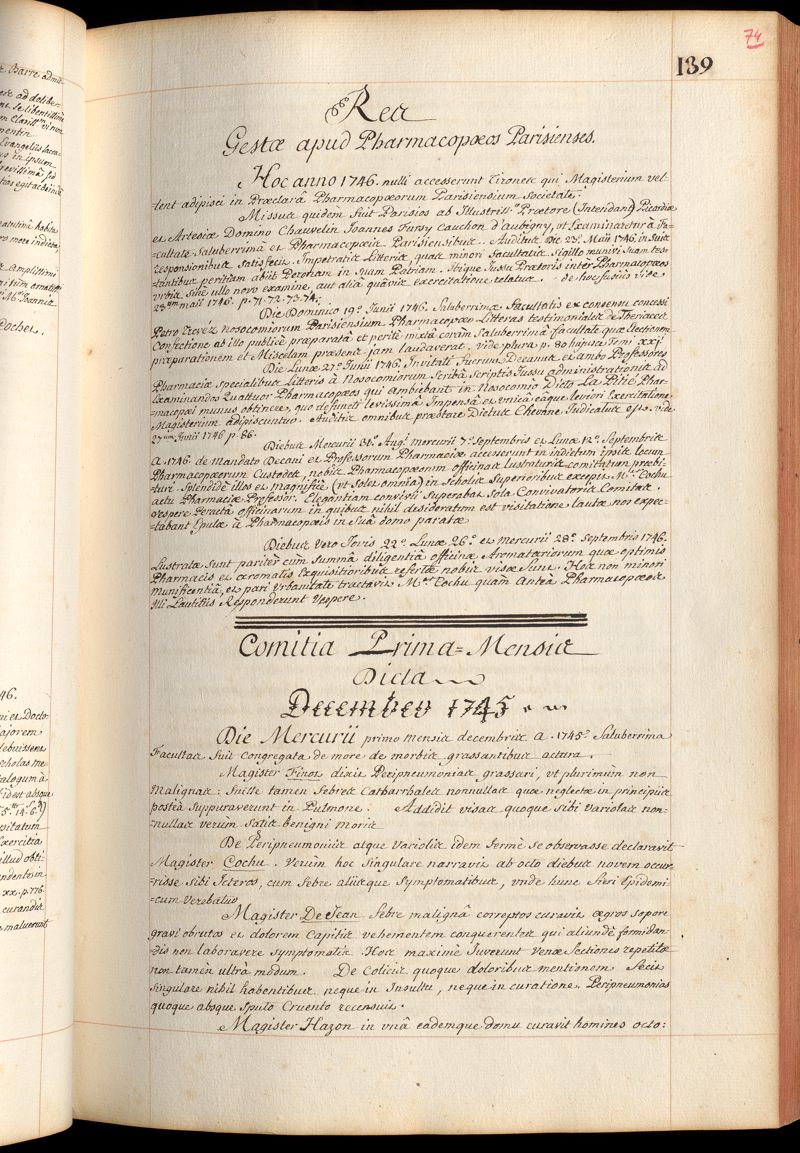 74
139
Res
Gestæ apud Pharmacopœos Parisienses.
Hoc anno 1746. nulli accesserunt Tirones qui Magisterium vel-
-lent adipisci in Præclarâ Pharmacopœorum Parisiensium Societate.
Missus quidem fuit Parisios ab Illustriss. Prætore (Intendant) Picardiæ
et Artesiæ Domino Chauvelin Joannes Fursy Cauchon d'aubigny, ut Examinaretur à Fa=
=cultate Saluberrimâ et Pharmacopœis Parisiensibus. Auditus die 23ª. Maii 1746. in suis
responsionibus satisfecit. Impetratis Litteris, quas minori facultatis sigillo muniri suam tes-
-tantibus peritiam abiit Peronam in suam Patriam. Ibique jussu Prætoris inter Pharmacopœos
urbis sine ullo novo examine, aut aliâ quâvis exercitatione relatus. de hoc fusius vide
23am maii 1746. p. 71. 72. 73. 74.
Die Dominico 19ª. Junii 1746. Saluberrimæ facultatis ex consensu concessi
Petro Trevéz nosocomiorum Parisiensium Pharmacopœo Litteras testimoniales de Theriaces
Confectione ab illo publicè præparatâ et peritè mixtâ coram Saluberrimâ facultate quæ Electionem
præparationem et Miscelam præsens jam laudaverat. vide plura p. 80 hujusce Tomi xxj
Die Lunæ 27ª. Junii 1746. Invitati fuerunt Decanus et ambo Professores
Pharmaciæ specialibus Litteris à Nosocomiorum Scribâ scriptis Jussu administrationis ad
Examinandos quattuor Pharmacopæos qui ambiebant in Nosocomio Dicto La Pitié Phar-
=macopœi munus obtinere, quo defuncti levissimâ Impensâ et unicâ eâque leviori Exercitatione
Magisterium adipiscuntur. Auditis omnibus præstare Dictus Chevane Judicatus est. vide
27am Junii 1746 p. 86.
Diebus Mercurii 31ª. Aug. mercurii 7ª. Septembris et Lunæ 12ª. Septembris
A. 1746. de Mandato Decani et Professorum Pharmaciæ accesserunt in indictum ipsis locum
Pharmacopœorum Custodes, nobis Pharmacopœorum officinas Lustraturis comitatum præbi-
-turi. Splendidè illos et magnificè (ut solet omnia) in scholis Superioribus excepit Mr. Cochu
actu Pharmaciæ Professor. Elegantiam convivii Superabat Sola Convivatoris Comitas.
vespere Peractâ officinarum in quibus nihil desideratum est visitatione lautæ nos expec-
-tabant Epulæ à Pharmacopœis in suâ domo paratæ
Diebus vero Jovis 22ª. Lunæ 26ª. et Mercurii 28ª. Septembris 1746.
Lustratæ sunt paritèr cùm summâ diligentiâ officinæ Aromatariorum quæ optimis
Pharmacis et aromatis Exquisitioribus refertæ nobis visæ sunt. Hos non minori
munificentiâ, et pari Urbanitate tractavit Mer Cochu quàm Anteà Pharmacopæos
Illi Lautitiis Responderunt Vespere.
Comitia Prima=Mensis
Dicta
December 1745
Die Mercurii primo mensis decembris A. 1745ª. Saluberrima
Facultas fuit congregata de more de morbis grassantibus actura.
Magister Finot dixit Peripneumonias grassari, ut plurimùm non
Malignas: fuisse tamen febres Catharrhales nonnullas quæ neglectæ in principiis
posteà suppuraverunt in Pulmone. Addidit visas quoque sibi Variolas non-
=nullas verùm satis benigni moris
De Peripneumoniis atque Variolis idem fermè se observasse declaravit
Magister Cochu. Verùm hoc singulare narravit ab octo diebus novem occur-
=risse sibi Icteros, cum febre aliisque symptomatibus, unde hunc fieri Epidemi-
=cum verebatur
Magister De Jean febre malignâ correptos curavit ægros sopore
gravi obrutos et dolorem Capitis vehementem conquerentes qui aliundè formidan-
dis non laboravere symptomatis. Hos maximè Juverunt venæ Sectiones repetitæ
non tamèn ultrà modum. De Colicis quoque doloribus mentionem fecit
singulare nihil habentibus neque in Insultu, neque in curatione. Peripneumonias
quoque absque sputo Cruento recensuit.
Magister Hazon in unâ eademque domu curavit homines octo: